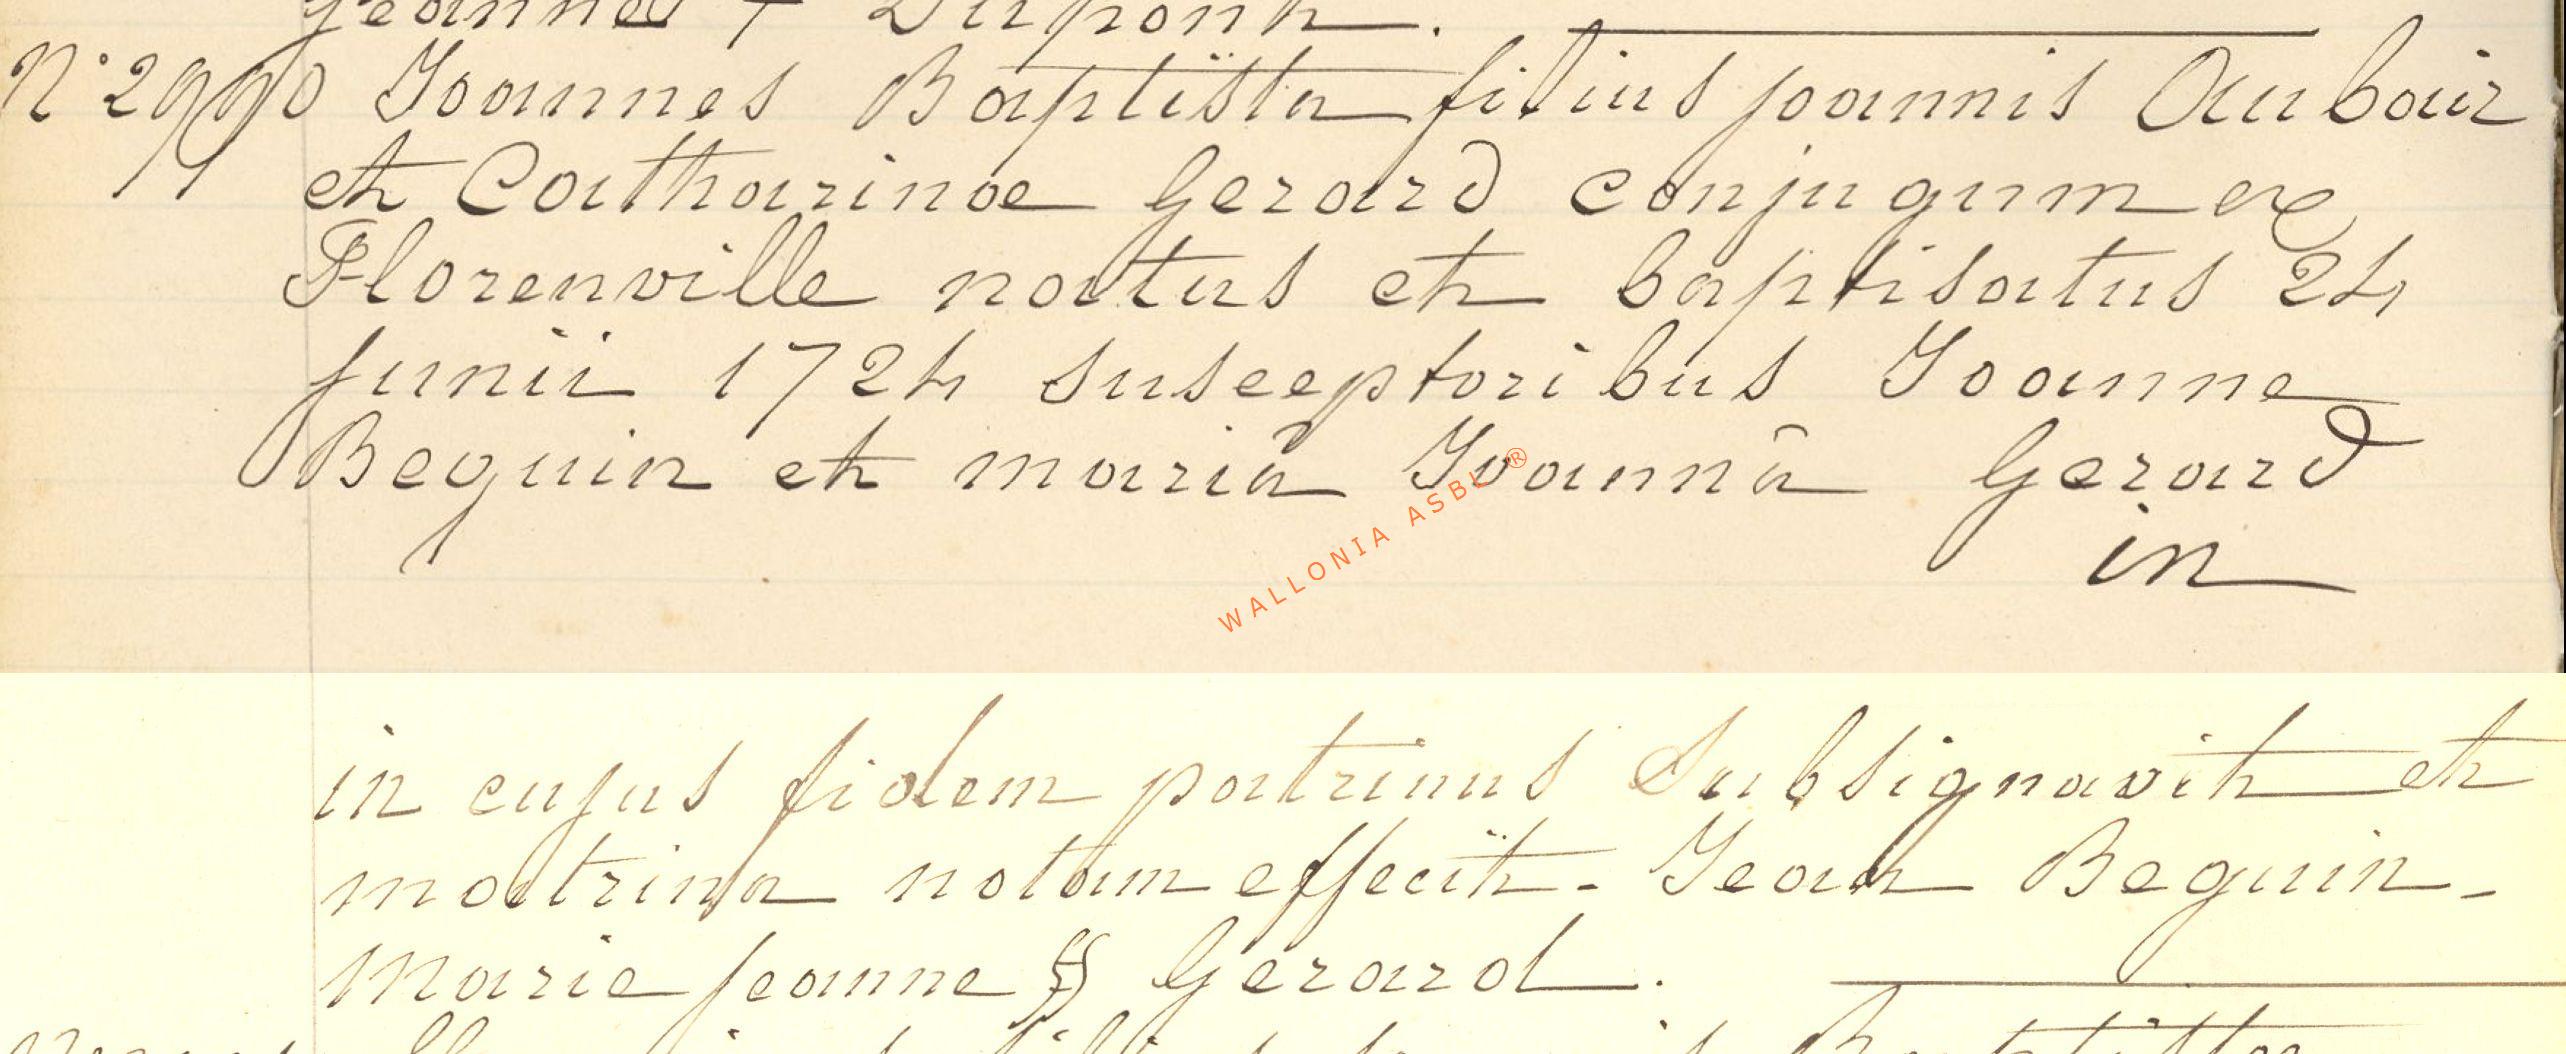 Jeanne + Dupont.
N° 2990 Joannes Baptista filius joannis Aubair
et Catharinae Gerard conjugum ex
Florenville natus et baptisatus 24
junii 1724 susceptoribus Joanne
Beguin et mariâ Joannâ Gerard
in
WALLONIA ASBL ®
in cujus fidem patrinus Subsignavit et
matrina notam effecit - Jean Beguin -
Marie jeanne Gerard.